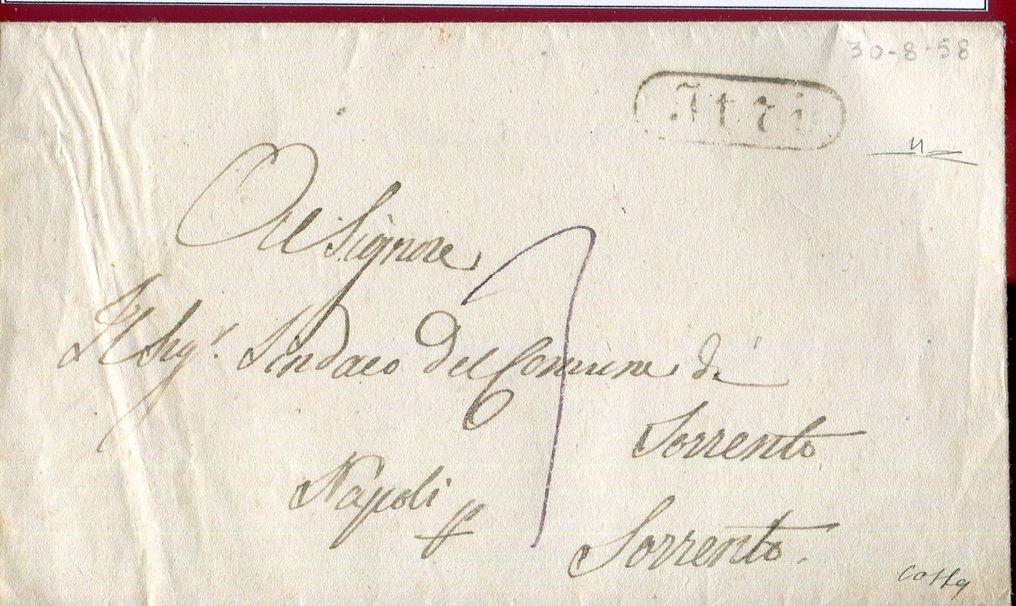 30-8-58
Itri
Al Signore
Il Sigr. Sindaco del Comune di
Sorrento
Napoli
Sorrento.